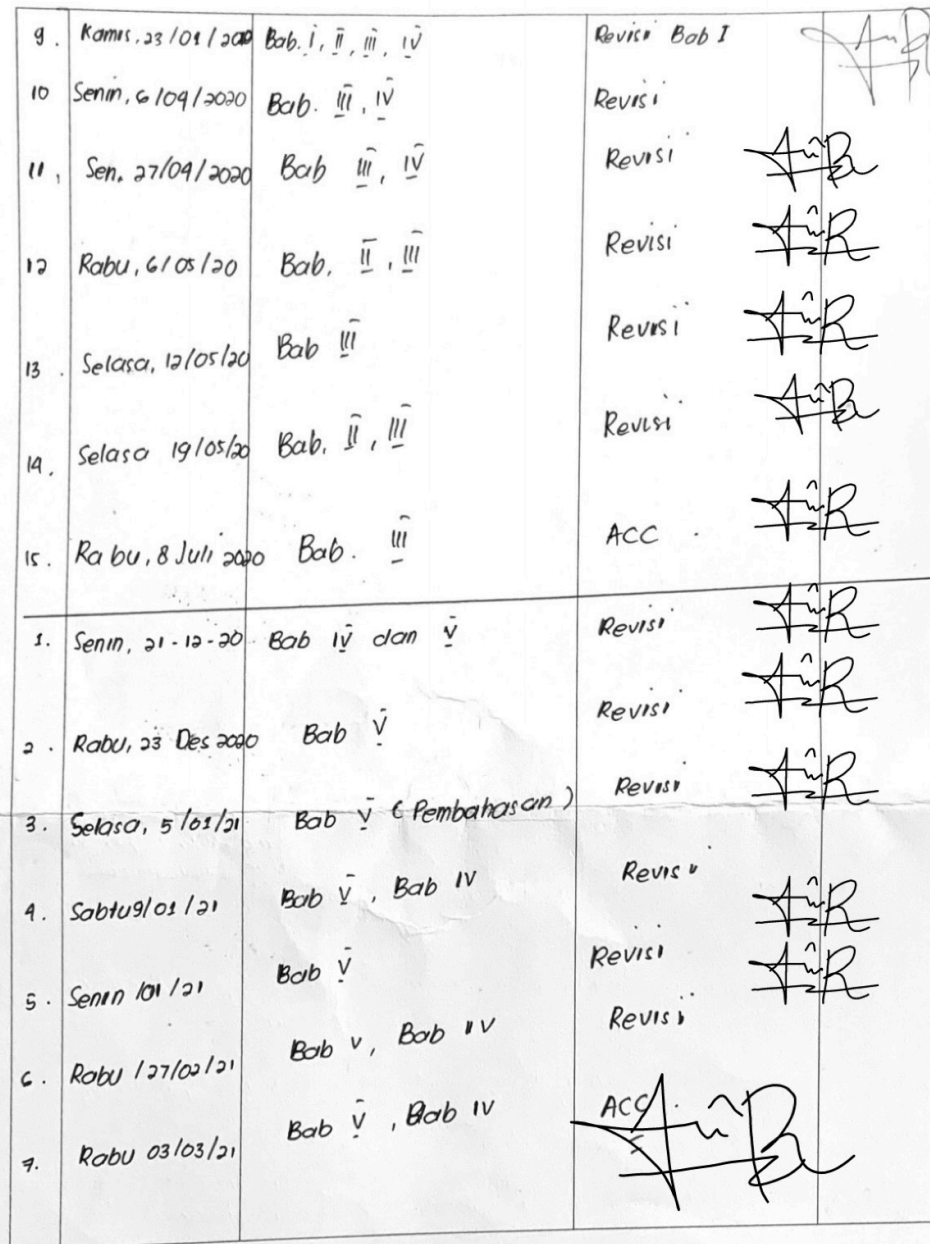 9. Kamis, 23/01/2020 Bab. I, II, III, IV Revisi Bab I
10 Senin, 6/04/2020 Bab. III, IV Revisi
11. Sen, 27/04/2020 Bab III, IV Revisi
12 Rabu, 6/05/20 Bab. II, III Revisi
13. Selasa, 12/05/20 Bab III Revisi
14. Selasa 19/05/20 Bab. II, III Revisi
15. Rabu, 8 Juli 2020 Bab. III ACC
1. Senin, 21-12-20 Bab IV dan V Revisi
2. Rabu, 23 Des 2020 Bab V Revisi
3. Selasa, 5/01/21 Bab V (Pembahasan) Revisi
4. Sabtu 9/01/21 Bab V, Bab IV Revisi
5. Senin /01/21 Bab V Revisi
6. Rabu /27/02/21 Bab V, Bab IV Revisi
7. Rabu 03/03/21 Bab V, Bab IV ACC.